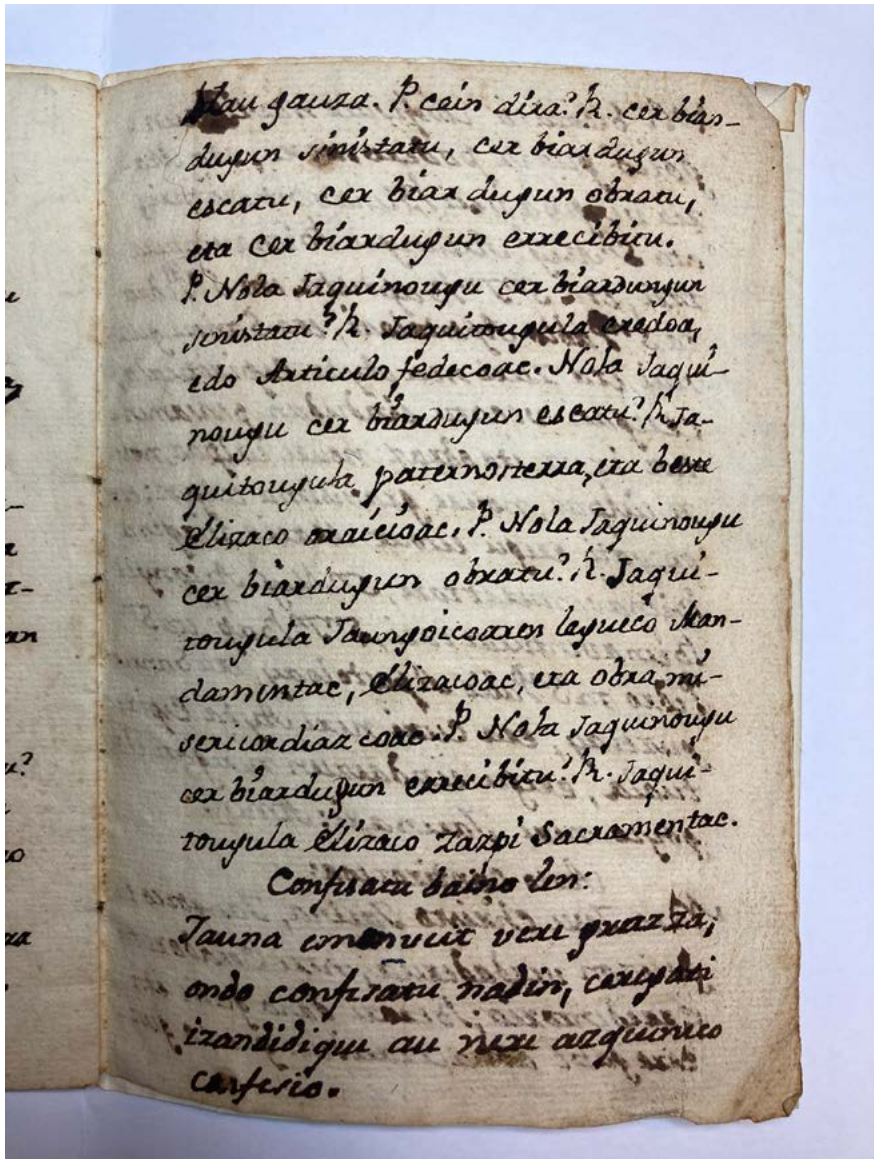 Hau gauza. P. cein dira? R. cer bian-
dugun sinistatu, cer biardugun
escatu, cer biar dugun obratu,
eta cer biardugun errecibitu.
P. Nola Jaquinougu cer biardungun
sinistatu? R. Jaquitougula credoa,
edo Articulo fedecoac. Nola Jaqui-
nougu cer biardugun escatu? R. Ja-
quitougula paternosterra, eta beste
Elizaco oraicioac. P. Nola Jaquinougu
cer biardugun obratu? R. Jaqui-
tougula Jaungoicoarren legueco Man-
damentac, Elizacoac, eta obra mi-
sericordiazcoac. P. Nola Jaquinougu
cer biardugun errecibitu? R. Jaqui-
tougula Elizaco zazpi Sacramentac.
Confesatu baino len:
Jauna vere grazza,
ondo confesatu nadin,
izandidiqui au nere azqueneco
confesio.